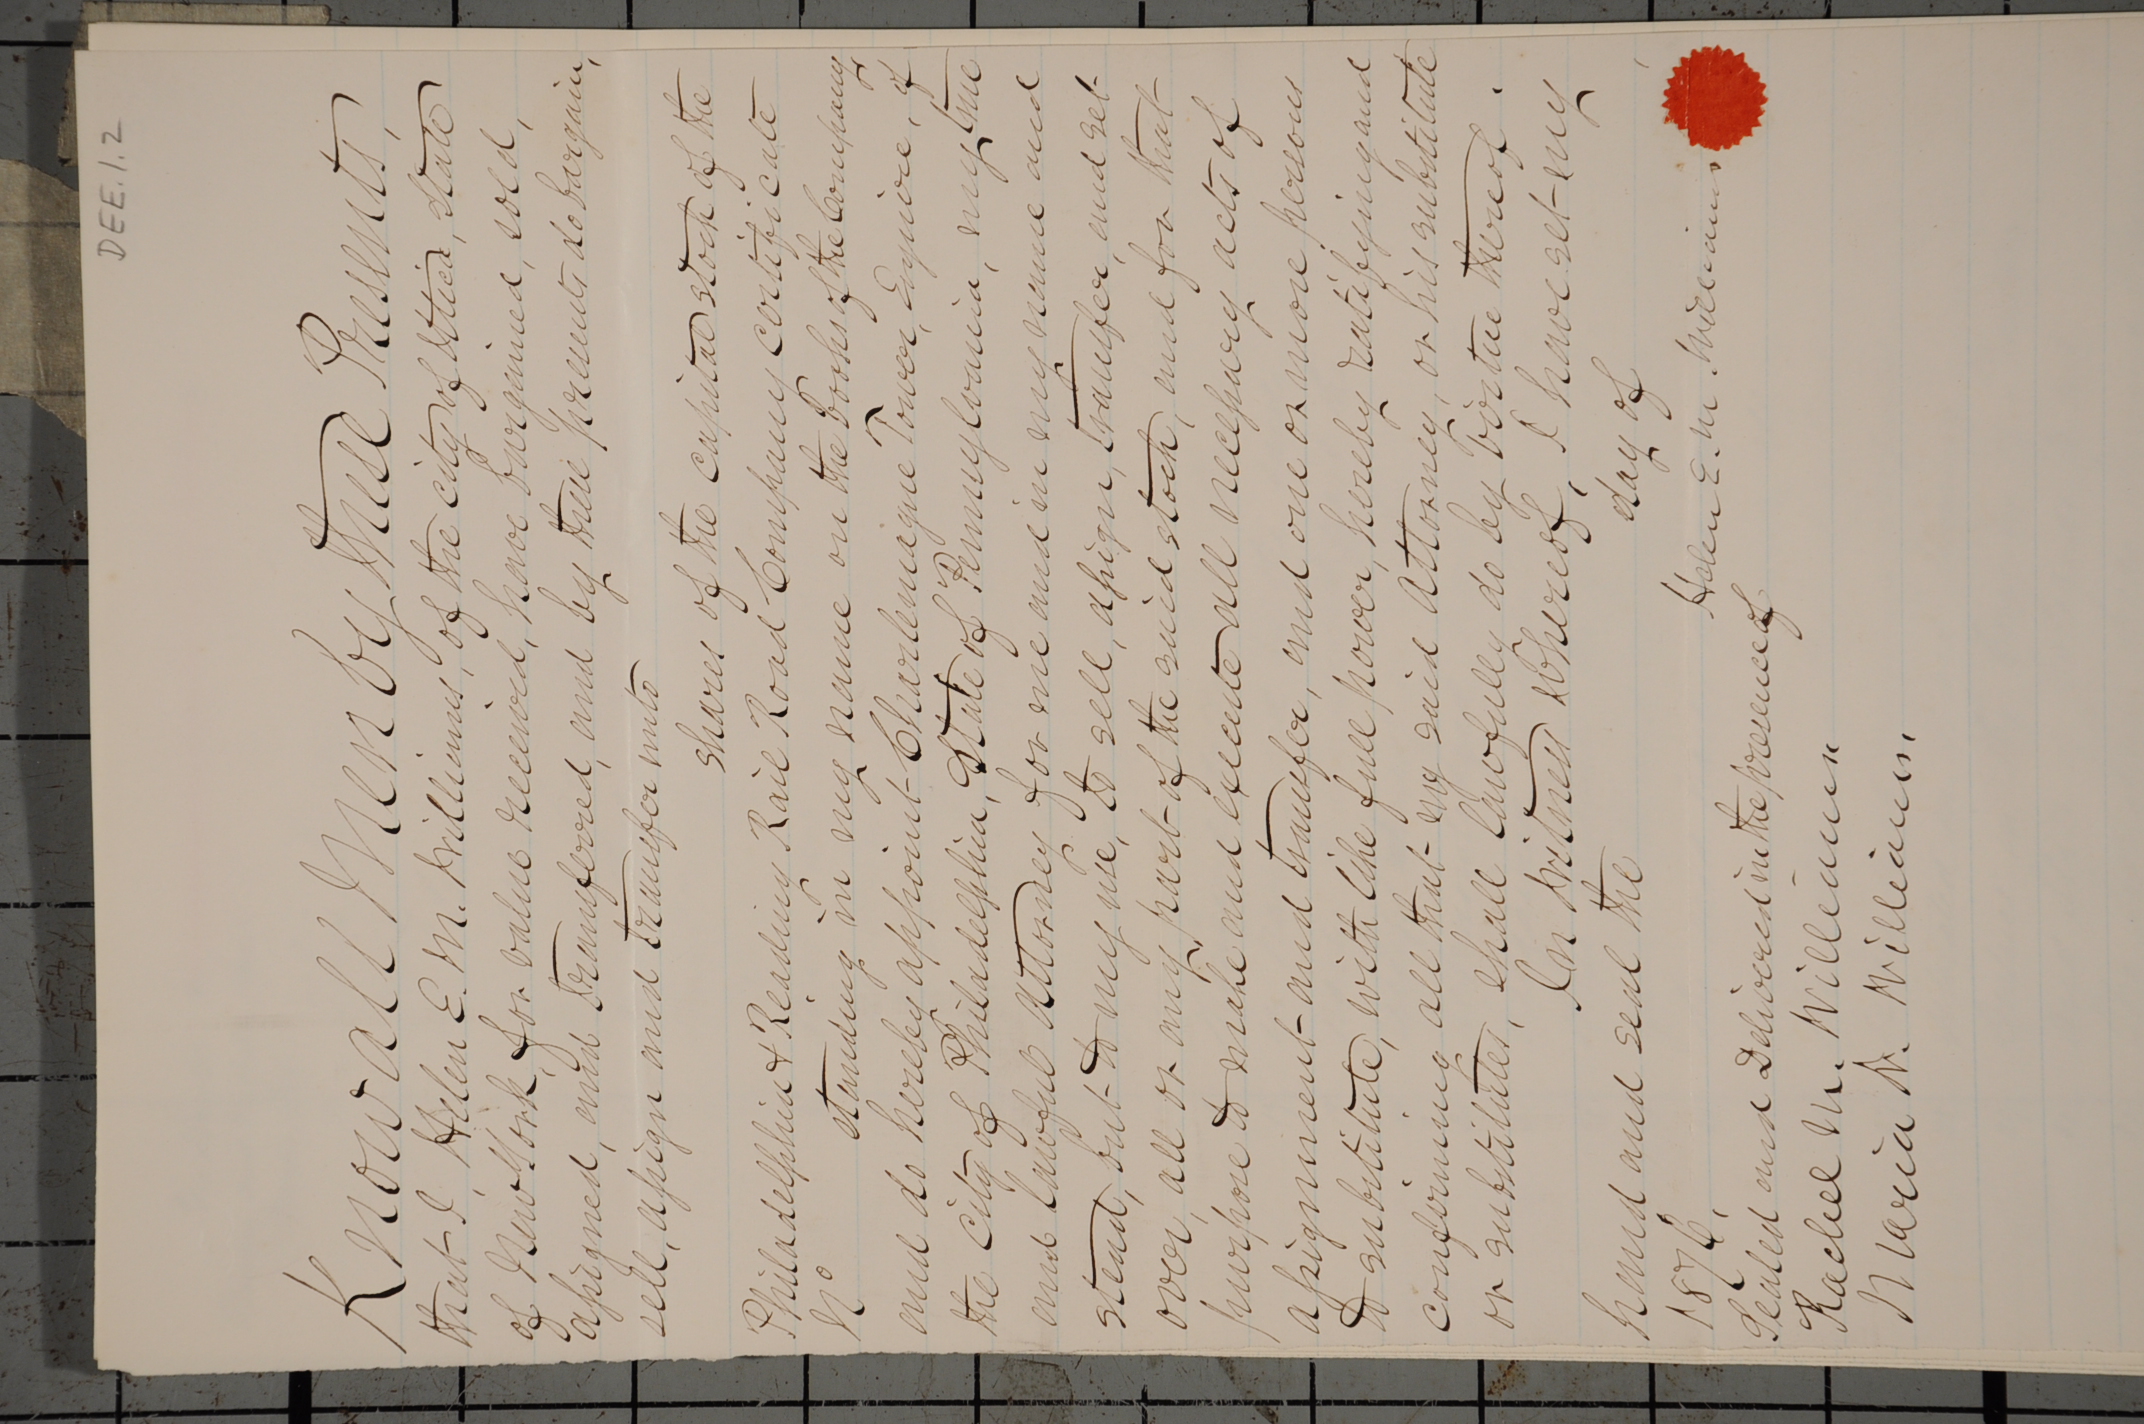 DEE.1.2
Know all Men by these Presents,
that I, Helen E. M. Williams, of the city of Utica, State
of New York, for value received, have bargained, sold,
assigned, and transferred, and by these presents do bargain,
sell, assign and transfer unto
shares of the capital stock of the
Philadelphia & Reading Rail Road Company certificate
No standing in my name on the books of the Company
and do hereby appoint Charlemagne Tower, Esquire, of
the City of Philadelphia, State of Pennsylvania, my true
and lawful attorney for me and in my name and
stead, but to my use, to sell, assign, transfer, and set
over, all or any part of the said stock, and for that
purpose to make and execute all necessary acts of
assignment and transfer, and one or more persons
to substitute, with like full power, hereby ratifying and
confirming all that my said Attorney, or his substitute
or substitutes, shall lawfully do by virtue thereof.
In Witness Whereof, I have set my
hand and seal the day of
1876.
Helen E. M. Williams
Sealed and Delivered in the presence of
Rachel M. Williams
Maria W. Williams.